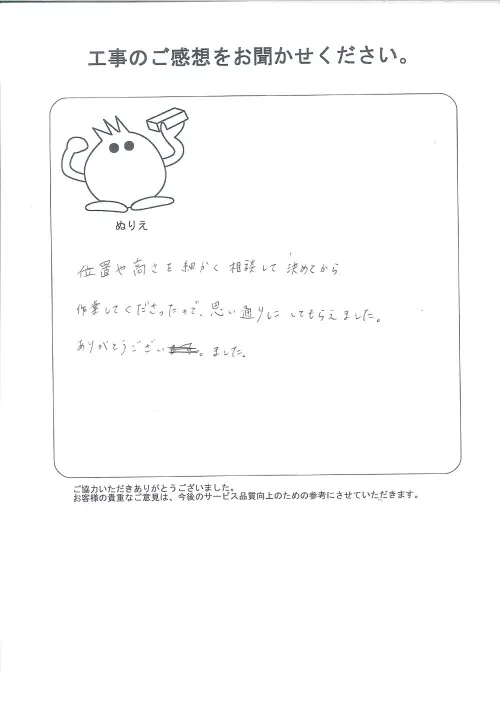 工事のご感想をお聞かせください。
ぬりえ
位置や高さを細かく相談して決めてから
作業してくださったので、思い通りにしてもらえました。
ありがとうござい。ました。
ご協力いただきありがとうございました。
お客様の貴重なご意見は、今後のサービス品質向上のための参考にさせていただきます。